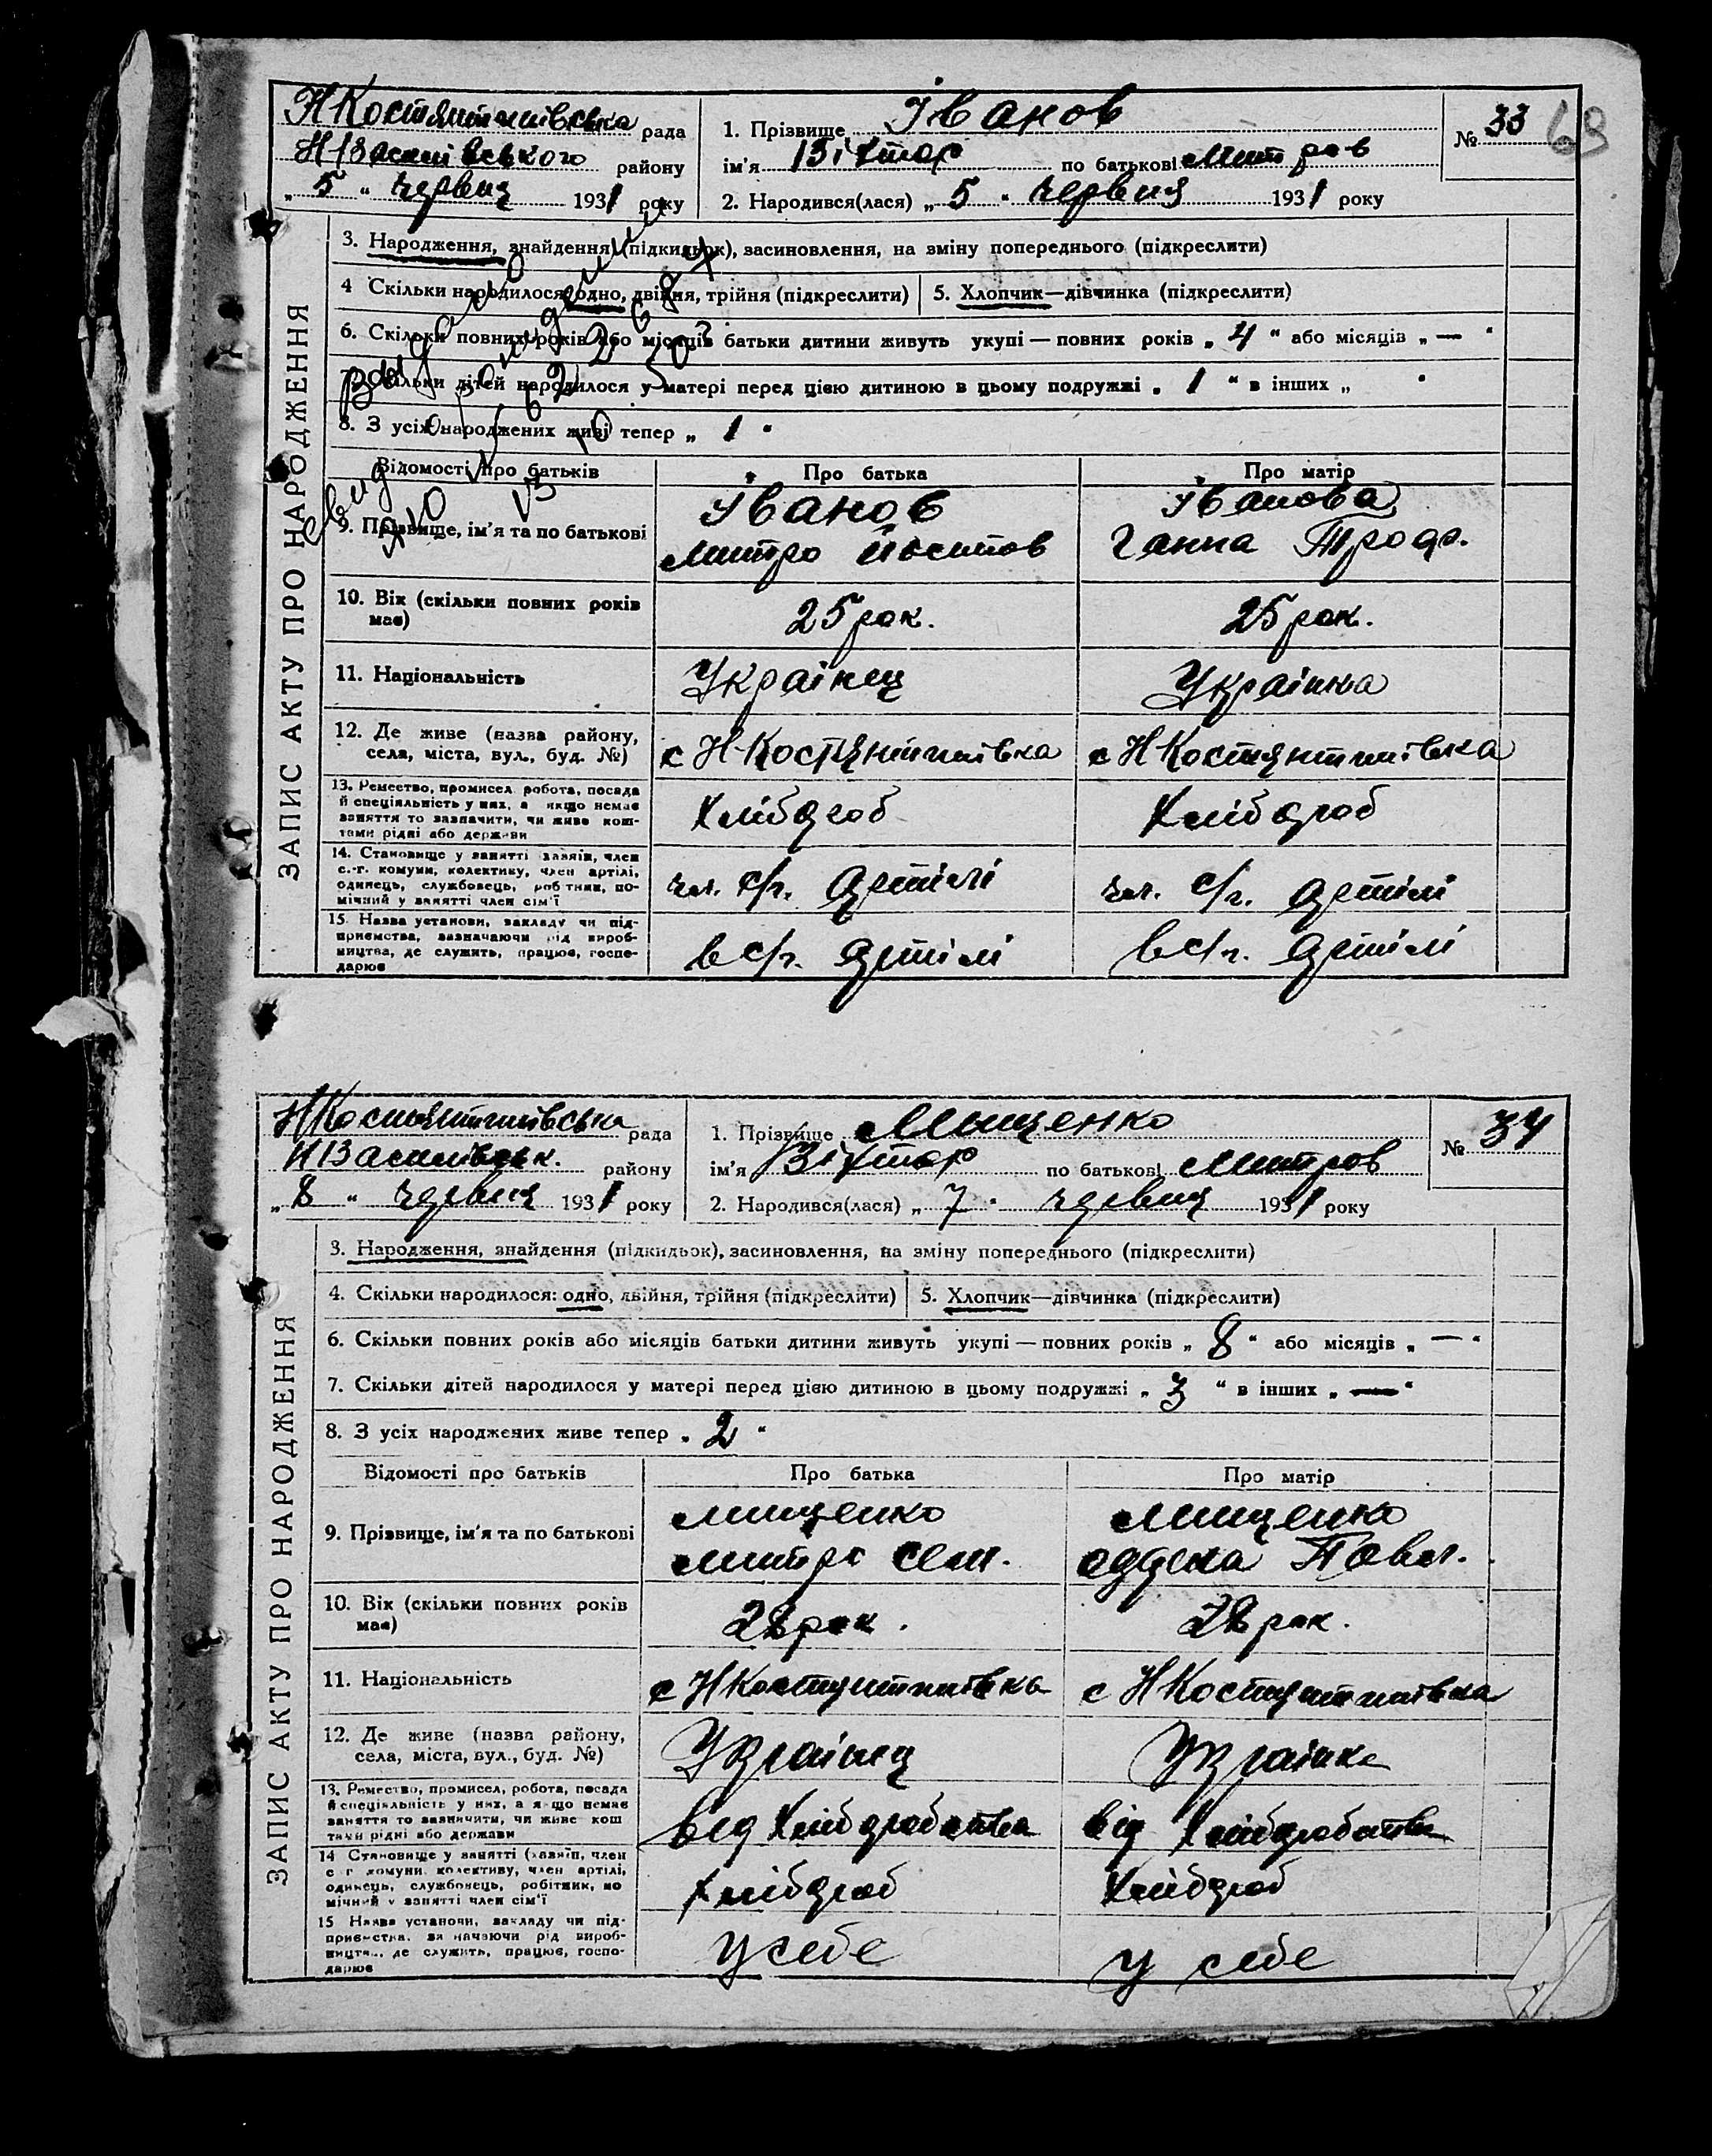 Н Костянтинівська рада
Н Василівського району
„ 5 “ червця 1931 року
1. Прізвище Іванов
ім'я Віктор по батькові Митров
2. Народився(лася) „ 5 “ червця 1931 року
№ 33
68
ЗАПИС АКТУ ПРО НАРОДЖЕННЯ
3. Народження, знайдення (підкидьок), засиновлення, на зміну попереднього (підкреслити)
4 Скільки народилося: одно, двійня, трійня (підкреслити)
5. Хлопчик—дівчинка (підкреслити)
6. Скільки повних років або місяців батьки дитини живуть укупі — повних років „ 4 “ або місяців „ — “
7. Скільки дітей народилося у матері перед цією дитиною в цьому подружжі „ 1 “ в інших „ “
8. З усіх народжених живі тепер „ 1 “
Відомості про батьків
Про батька
Про матір
9. Прізвище, ім'я та по батькові
Іванов
Митро Йосипов
Іванова
Ганна Трод.
10. Вік (скільки повних років має)
25 рок.
25 рок.
11. Національність
Українец
Українка
12. Де живе (назва району, села, міста, вул., буд. №)
с Н Костянтинівка
с Н Костянтинівка
13. Ремество, промисел, робота, посада й спеціяльність у них, а якщо немає заняття то зазначити, чи живе коштами рідні або держави
Хлібороб
Хлібороб
14. Становище у занятті хазяїн, член с.-г. комуни, колективу, член артілі, одинець, службовець, робітник, помічний у занятті член сім'ї
чл. с/г. артілі
чл. с/г. артілі
15. Назва установи, закладу чи підприємства, зазначаючи рід виробництва, де служить, працює, господарює
в с/г. артілі
в с/г. артілі
Н Костянтинівська рада
Н Василівськ. району
„ 8 “ червця 1931 року
1. Прізвище Мищенко
ім'я Віктор по батькові Митров
2. Народився(лася) „ 7 “ червця 1931 року
№ 34
ЗАПИС АКТУ ПРО НАРОДЖЕННЯ
3. Народження, знайдення (підкидьок), засиновлення, на зміну попереднього (підкреслити)
4. Скільки народилося: одно, двійня, трійня (підкреслити)
5. Хлопчик—дівчинка (підкреслити)
6. Скільки повних років або місяців батьки дитини живуть укупі — повних років „ 8 “ або місяців „ — “
7. Скільки дітей народилося у матері перед цією дитиною в цьому подружжі „ 3 “ в інших „ — “
8. З усіх народжених живе тепер „ 2 “
Відомості про батьків
Про батька
Про матір
9. Прізвище, ім'я та по батькові
Мищенко
Митро Сем.
Мищенко
Павл.
10. Вік (скільки повних років має)
28 рок.
28 рок.
11. Національність
с Н Костянтинівка
с Н Костянтинівка
12. Де живе (назва району, села, міста, вул., буд. №)
Українц
Українка
13. Ремество, промисел, робота, посада й спеціяльність у них, а якщо немає заняття то зазначити, чи живе коштами рідні або держави
від хліборобства
від хліборобства
14 Становище у занятті (хазяїн, член с г комуни, колективу, член артілі, одинець, службовець, робітник, помічний у занятті член сім'ї
хлібороб
хлібороб
15 Назва установи, закладу чи підприємства, зазначаючи рід виробництва, де служить, працює, господарює
у себе
у себе